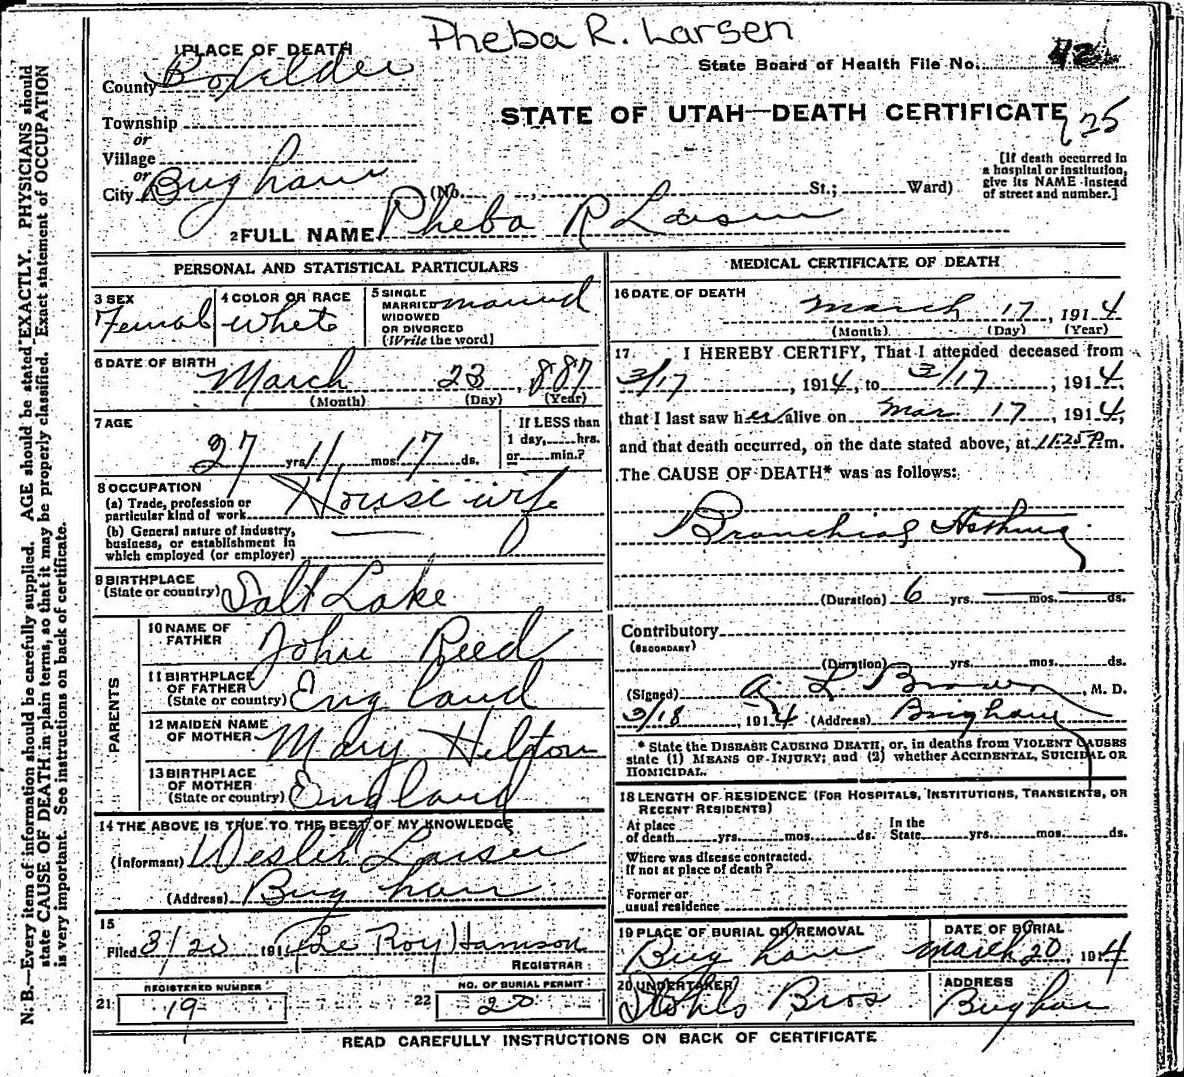 Pheba R. Larsen
1 PLACE OF DEATH
County Box elder
State Board of Health File No.
STATE OF UTAH—DEATH CERTIFICATE
Township
or
Village
or
City Brigham
(No. St.; Ward)
[If death occurred in
a hospital or institution,
give its NAME instead
of street and number.]
2 FULL NAME Pheba R Larsen
PERSONAL AND STATISTICAL PARTICULARS
3 SEX
Female
4 COLOR OR RACE
White
5 SINGLE
MARRIED
WIDOWED
OR DIVORCED
(Write the word)
married
6 DATE OF BIRTH
March 23, 887
(Month) (Day) (Year)
7 AGE
27 yrs. 11 mos. 17 ds.
If LESS than
1 day, hrs.
or min.?
8 OCCUPATION
(a) Trade, profession or
particular kind of work
House wife
(b) General nature of industry,
business, or establishment in
which employed (or employer)
9 BIRTHPLACE
(State or country) Salt Lake
PARENTS
10 NAME OF
FATHER
John Reed
11 BIRTHPLACE
OF FATHER
(State or country) England
12 MAIDEN NAME
OF MOTHER
Mary Helton
13 BIRTHPLACE
OF MOTHER
(State or country) England
14 THE ABOVE IS TRUE TO THE BEST OF MY KNOWLEDGE
(Informant) Larsen
(Address) Brigham
15
Filed 3/20 191 Le Roy Harrison
REGISTRAR
REGISTERED NUMBER
21 19
NO. OF BURIAL PERMIT
22 20
MEDICAL CERTIFICATE OF DEATH
16 DATE OF DEATH
March 17, 1914
(Month) (Day) (Year)
17. I HEREBY CERTIFY, That I attended deceased from
3/17, 1914, to 3/17, 1914,
that I last saw her alive on Mar 17, 1914,
and that death occurred, on the date stated above, at 11:25 P.m.
The CAUSE OF DEATH* was as follows:
Bronchial Asthma
(Duration) 6 yrs. mos. ds.
Contributory
(SECONDARY)
(Duration) yrs. mos. ds.
(Signed) A L Brown, M. D.
3/18, 1914 (Address) Brigham
* State the DISEASE CAUSING DEATH, or, in deaths from VIOLENT CAUSES
state (1) MEANS OF INJURY; and (2) whether ACCIDENTAL, SUICIDAL OR
HOMICIDAL.
18 LENGTH OF RESIDENCE (FOR HOSPITALS, INSTITUTIONS, TRANSIENTS, OR
RECENT RESIDENTS)
At place
of death yrs. mos. ds.
In the
State yrs. mos. ds.
Where was disease contracted.
if not at place of death?
Former or
usual residence
19 PLACE OF BURIAL OR REMOVAL
Brigham
DATE OF BURIAL
March 20, 1914
20 UNDERTAKER
Bros
ADDRESS
Brigham
READ CAREFULLY INSTRUCTIONS ON BACK OF CERTIFICATE
N. B.—Every item of information should be carefully supplied. AGE should be stated EXACTLY. PHYSICIANS should
state CAUSE OF DEATH in plain terms, so that it may be properly classified. Exact statement of OCCUPATION
is very important. See instructions on back of certificate.